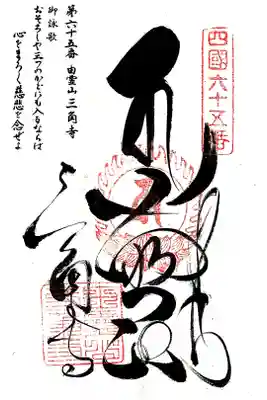 四國六十五番
奉納
三角寺
第六十五番 由霊山 三角寺
御詠歌
おそろしや三つのかどにも入るならば
心をまろく慈悲を念ぜよ